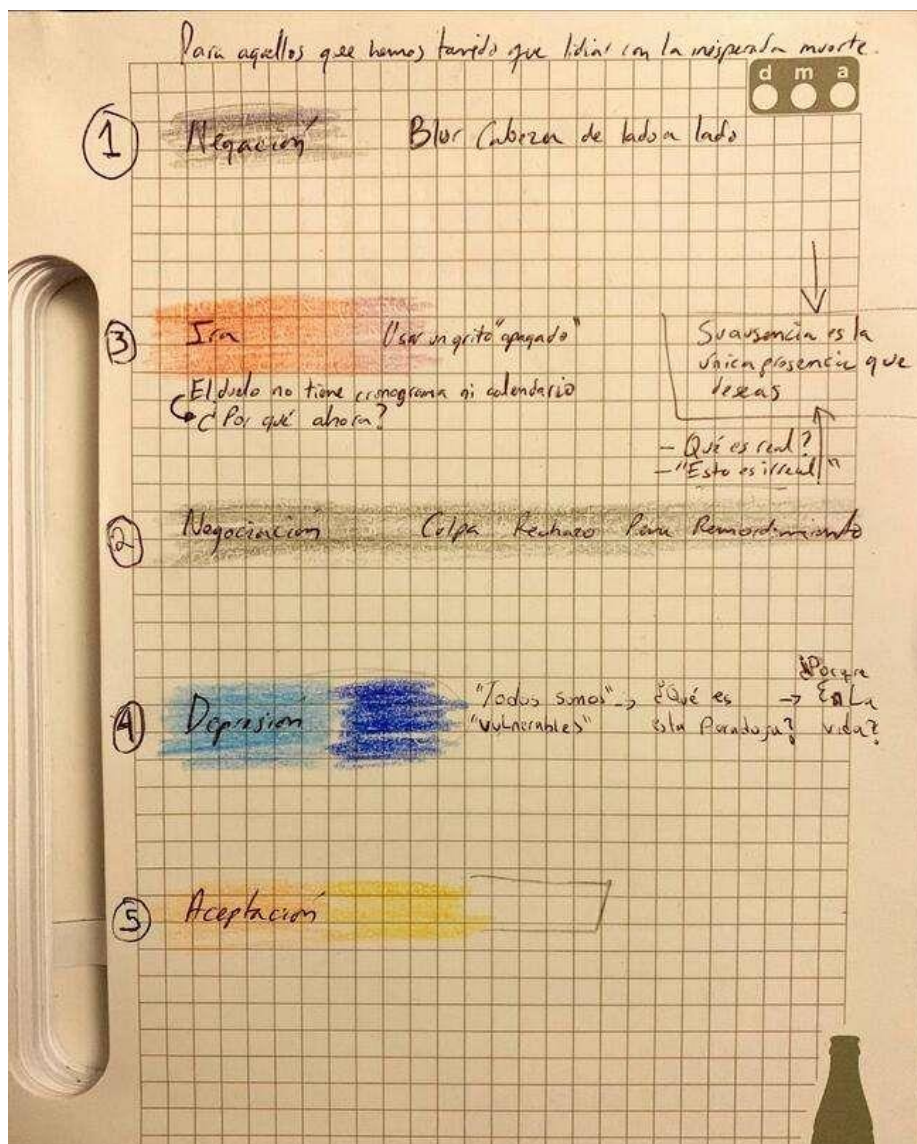 Para aquellos que hemos tenido que lidiar con la inesperada muerte.
d m a
1 Negación Blur Cabeza de lado a lado
3 Ira Usar un grito "apagado"
El duelo no tiene cronograma ni calendario
¿Por qué ahora?
Su ausencia es la
única presencia que
deseas
- Qué es real?
- "Esto es irreal"
2 Negociación Culpa Rechazo Pena Remordimiento
4 Depresión "Todos somos" → ¿Qué es → ¿Porque
"vulnerables" esta Paradoja? La
vida?
5 Aceptación